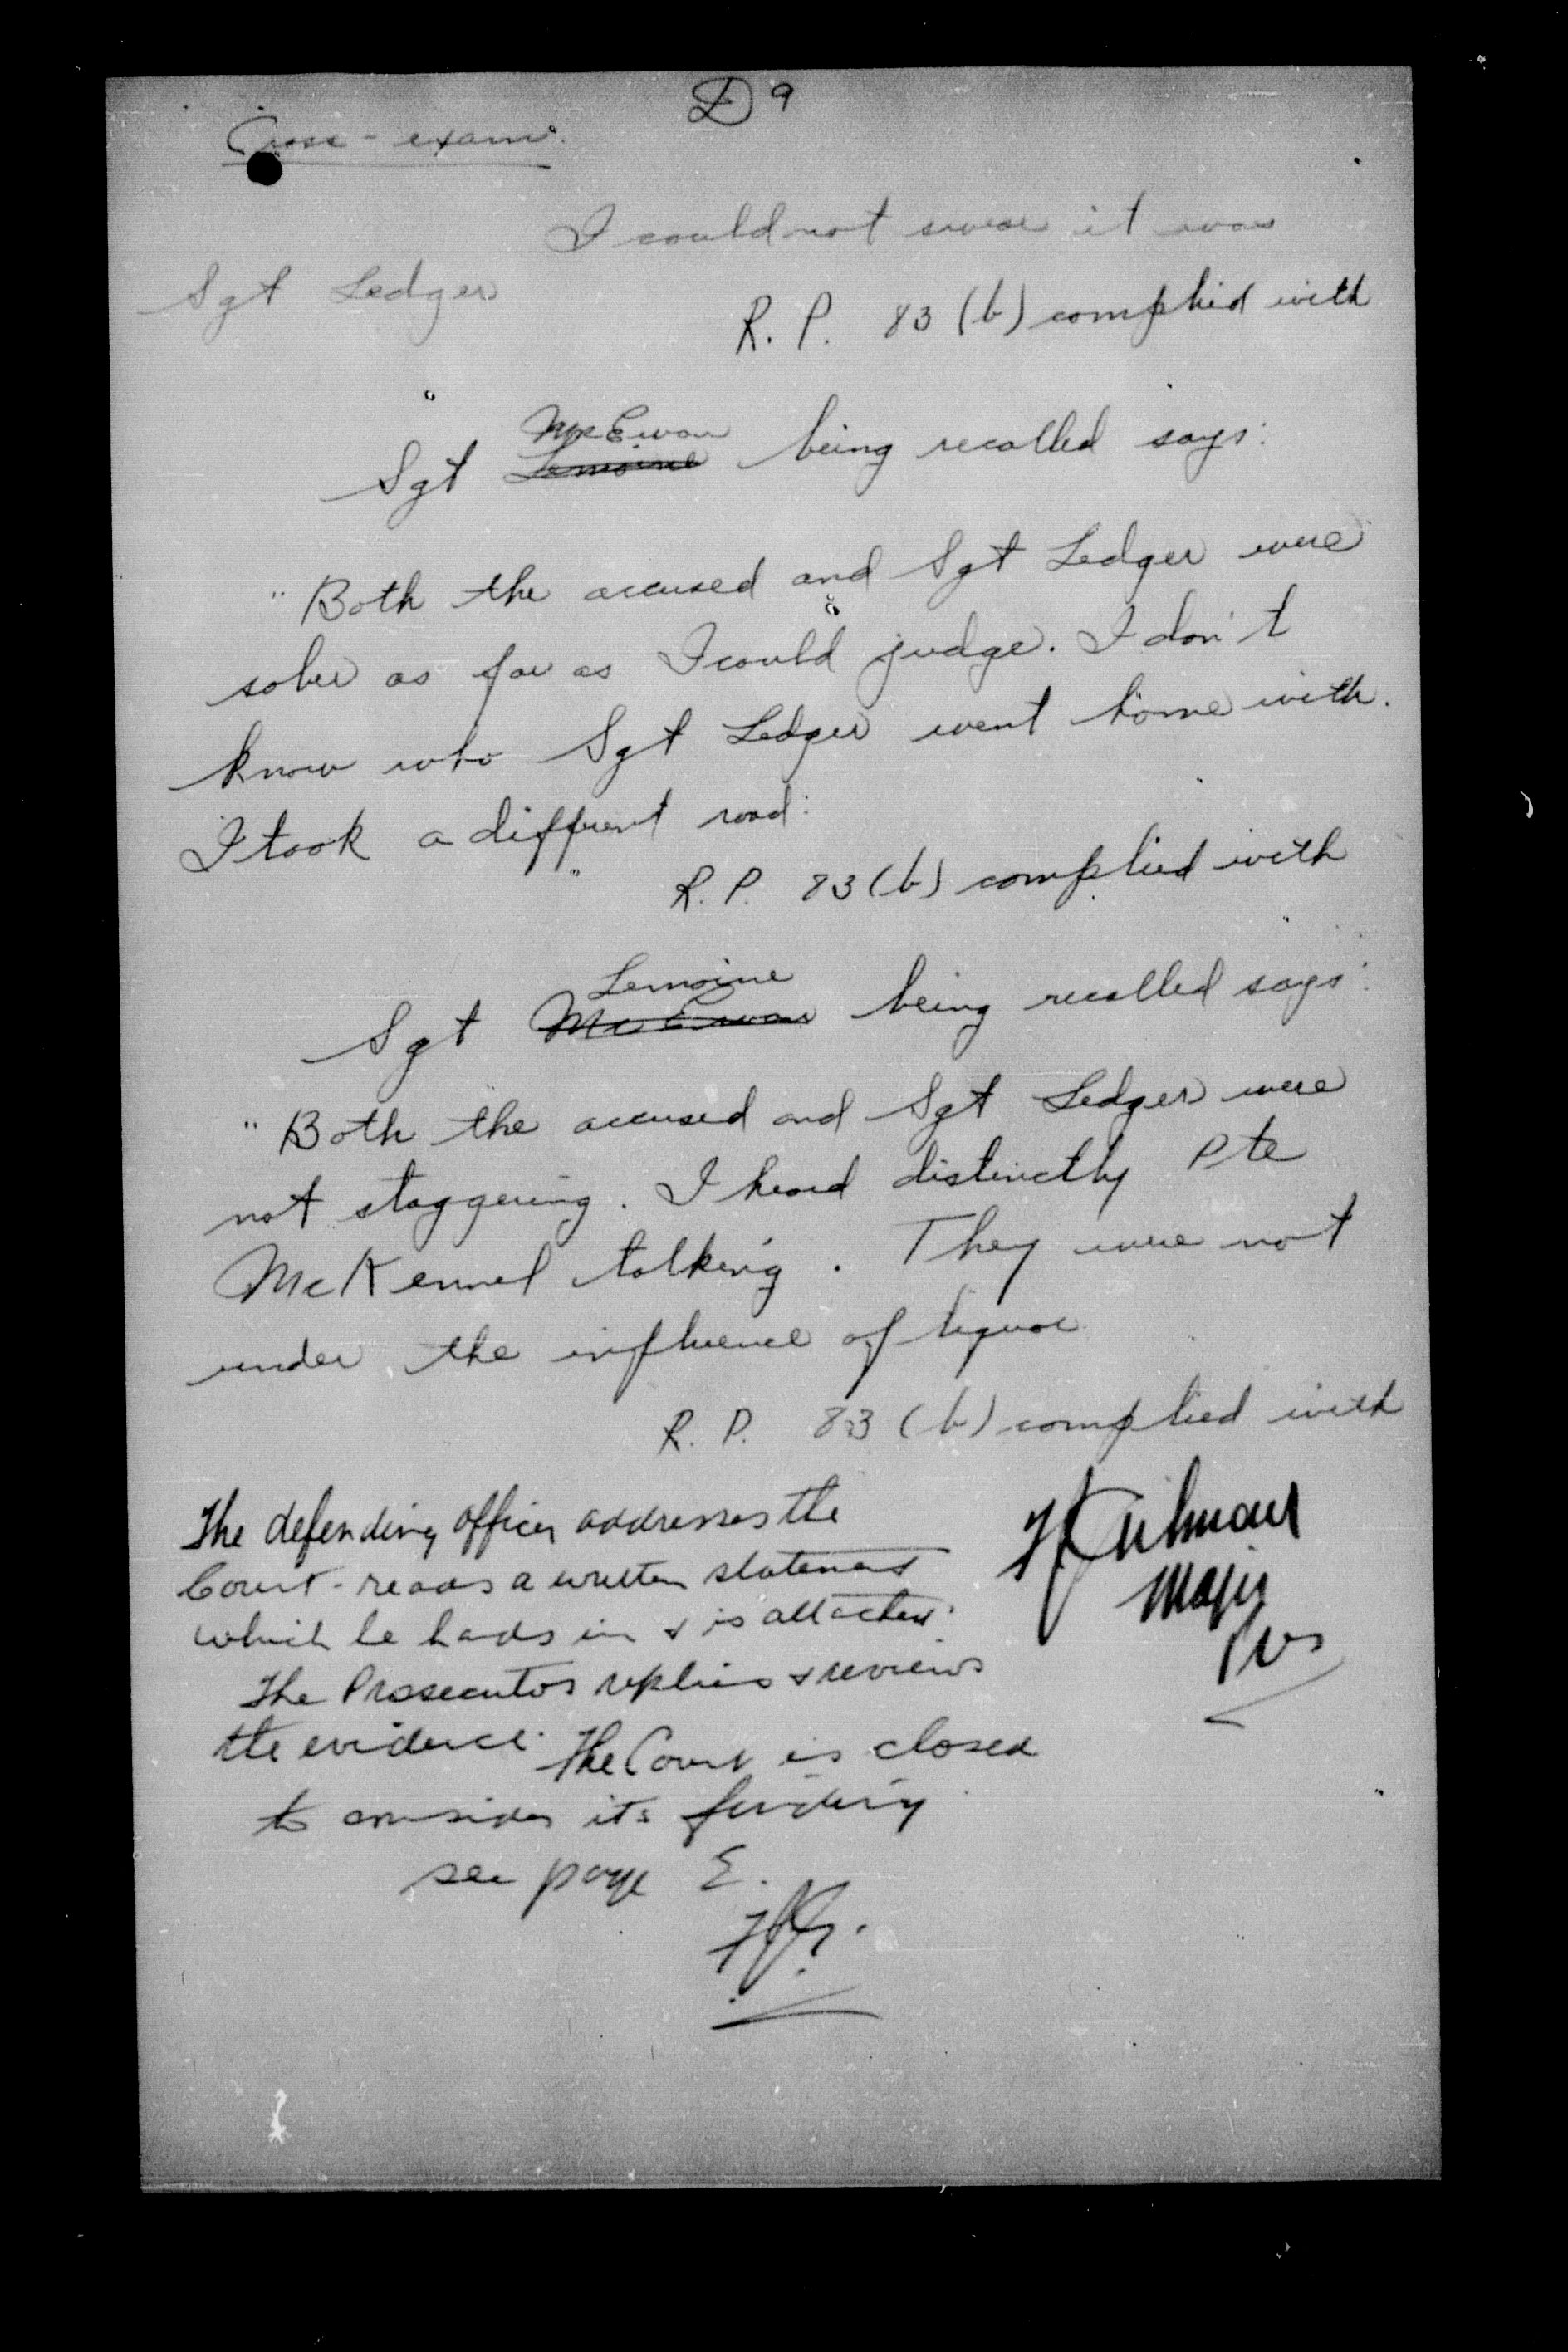 D 9
Cross-exam.
I could not swear it was
Sgt Ledger
R. P. 83 (b) complied with
McEwan
Sgt Lemoine being recalled says:
"Both the accused and Sgt Ledger were
sober as far as I could judge. I don't
know who Sgt Ledger went home with.
I took a different road."
R. P. 83 (b) complied with
Lemoine
Sgt McEwan being recalled says:
"Both the accused and Sgt Ledger were
not staggering. I heard distinctly Pte
McKennel talking. They were not
under the influence of liquor
R. P. 83 (b) complied with
The defending officer addresses the
Court - reads a written statement
which he hands in & is attached.
Major
The Prosecutor replies & reviews
the evidence. The Court is closed
to consider its finding
see page E.